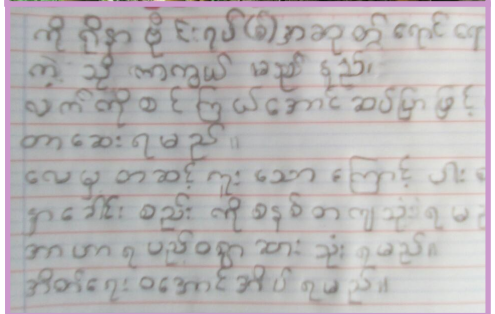 ကို ရိုနာ ဗိုင်းရပ်(စ်)အဆုတ် ရောင် ရော
ကဲ့ သို့ ကာကွယ် မည် နည်း
လက် ကို စင် ကြယ်အောင် ဆပ်ပြာ ဖြင့်
တာဆေး ရမည်။
လေမှ တဆင့် ကူး သော ကြောင့် ပါး
နှာ ခေါင်း စည်း ကို စနစ် တကျ သုံး ရ မည
အာဟာ ရ ပြည့်ဝစွာ သား သုံး ရမည်။
အိတ်ရေး ဝအောင် အိပ် ရမည်။